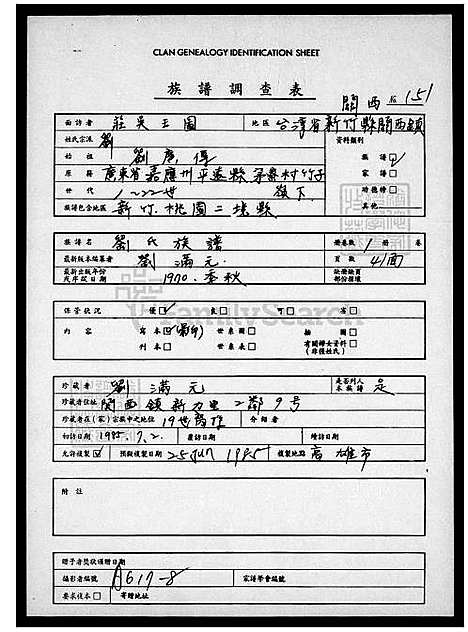 CLAN GENEALOGY IDENTIFICATION SHEET
族譜調查表
關西 151
面訪者 莊吳玉圖 地區 台灣省新竹縣關西鎮
姓氏宗派 劉 資料類別
始祖 劉 族譜
原籍 廣東省嘉應州平遠縣 村竹子 家譜□
世代 1~22世 嶺下 時德特□
族譜包含地區 新竹.桃園二縣 其他
族譜名 劉氏族譜 册卷數 1 册 卷
最新版本編纂者 劉滿元 頁數 41面
最新出版年份或序跋日期 1970.季秋 缺疑損頁部份損壞
保管狀況 優 良□ 可□ 劣□
內容 寫本 (影印) 世系圖□ 插圖□
刊本□ 世系表□ 有關婦女資料□ (非僅姓氏)
珍藏者 劉滿元 是否列入本族譜 是
珍藏者住址 關西鎮新力里二鄰9号
珍藏者在(家)宗族中之地位 19世 介紹者
初訪日期 1985.7.2. 覆訪日期 續訪日期
允許複製 預擬複製日期 25 Jun 1985 複製地點 高雄市
附註
贈予者獎狀頒贈日期
攝影者編號 A617-8 家譜學會編號
要求複本□ 寄贈地址
FamilySearch